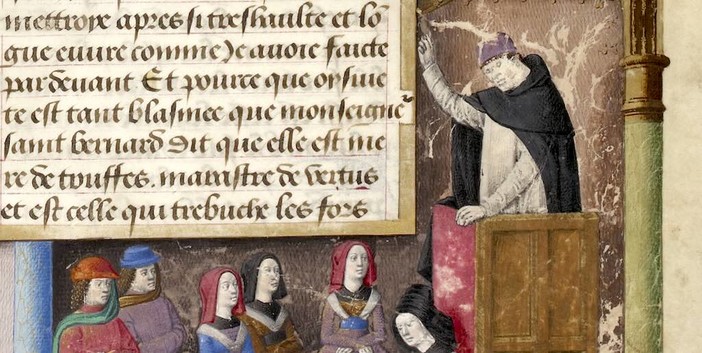 mettroye apres si treshaulte et lō
gue euure comme Je auoie faicte
par deuant. Et pource que oysiue
te est tant blasmee que monseigne᷑
saint bernard dit que elle est me
re de touffes. marastre de vertus
et est celle qui trebuche les fors